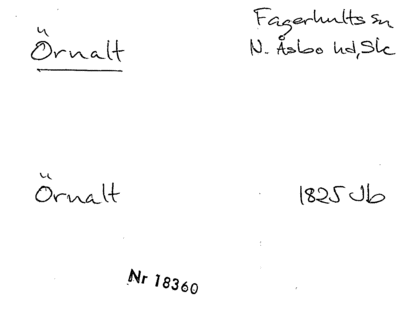 Örnalt
Fagerhults sn
N. Åsbo hd, Sk
Örnalt
1825 Jb
Nr 18360